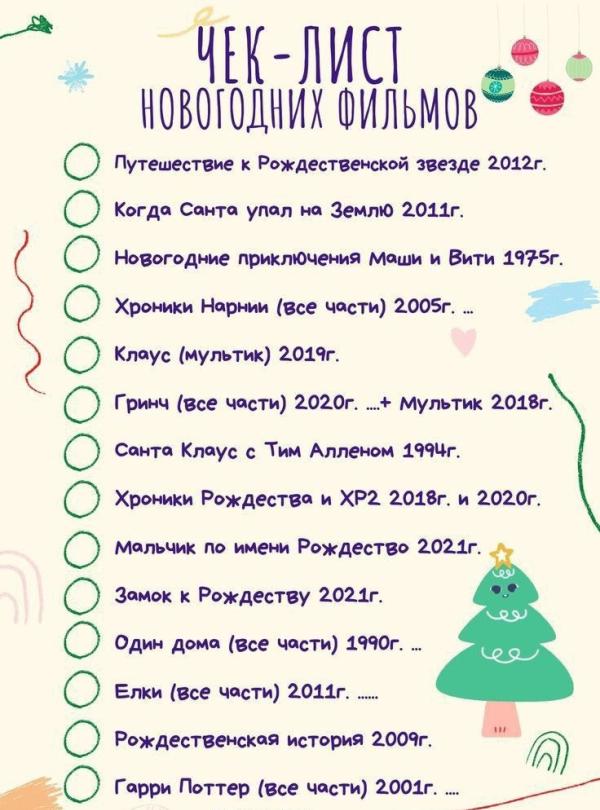 ЧЕК-ЛИСТ
НОВОГОДНИХ ФИЛЬМОВ
Путешествие к Рождественской звезде 2012г.
Когда Санта упал на Землю 2011г.
Новогодние приключения Маши и Вити 1975г.
Хроники Нарнии (все части) 2005г. ...
Клаус (мультик) 2019г.
Гринч (все части) 2020г. ....+ Мультик 2018г.
Санта Клаус с Тим Алленом 1994г.
Хроники Рождества и ХР2 2018г. и 2020г.
Мальчик по имени Рождество 2021г.
Замок к Рождеству 2021г.
Один дома (все части) 1990г. ...
Елки (все части) 2011г. ......
Рождественская история 2009г.
Гарри Поттер (все части) 2001г. ....